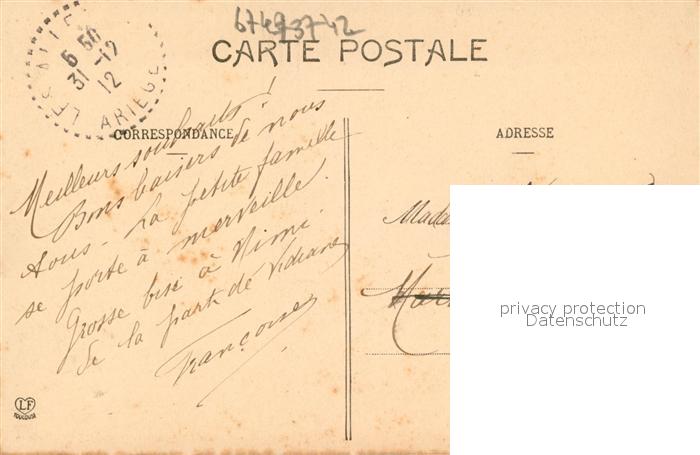 6749737-42
CARTE POSTALE
5 50
31 -12
12
ARIEGE
CORRESPONDANCE
ADRESSE
Meilleurs souhaits !
Bons baisers de nous
tous - La petite famille
se porte à merveille.
Grosse bise à Mimi
de la part de
Françoise
Madam
privacy protection
Datenschutz
LF
TOULOUSE